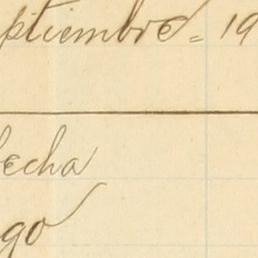 ptiembre = 19
fecha
go